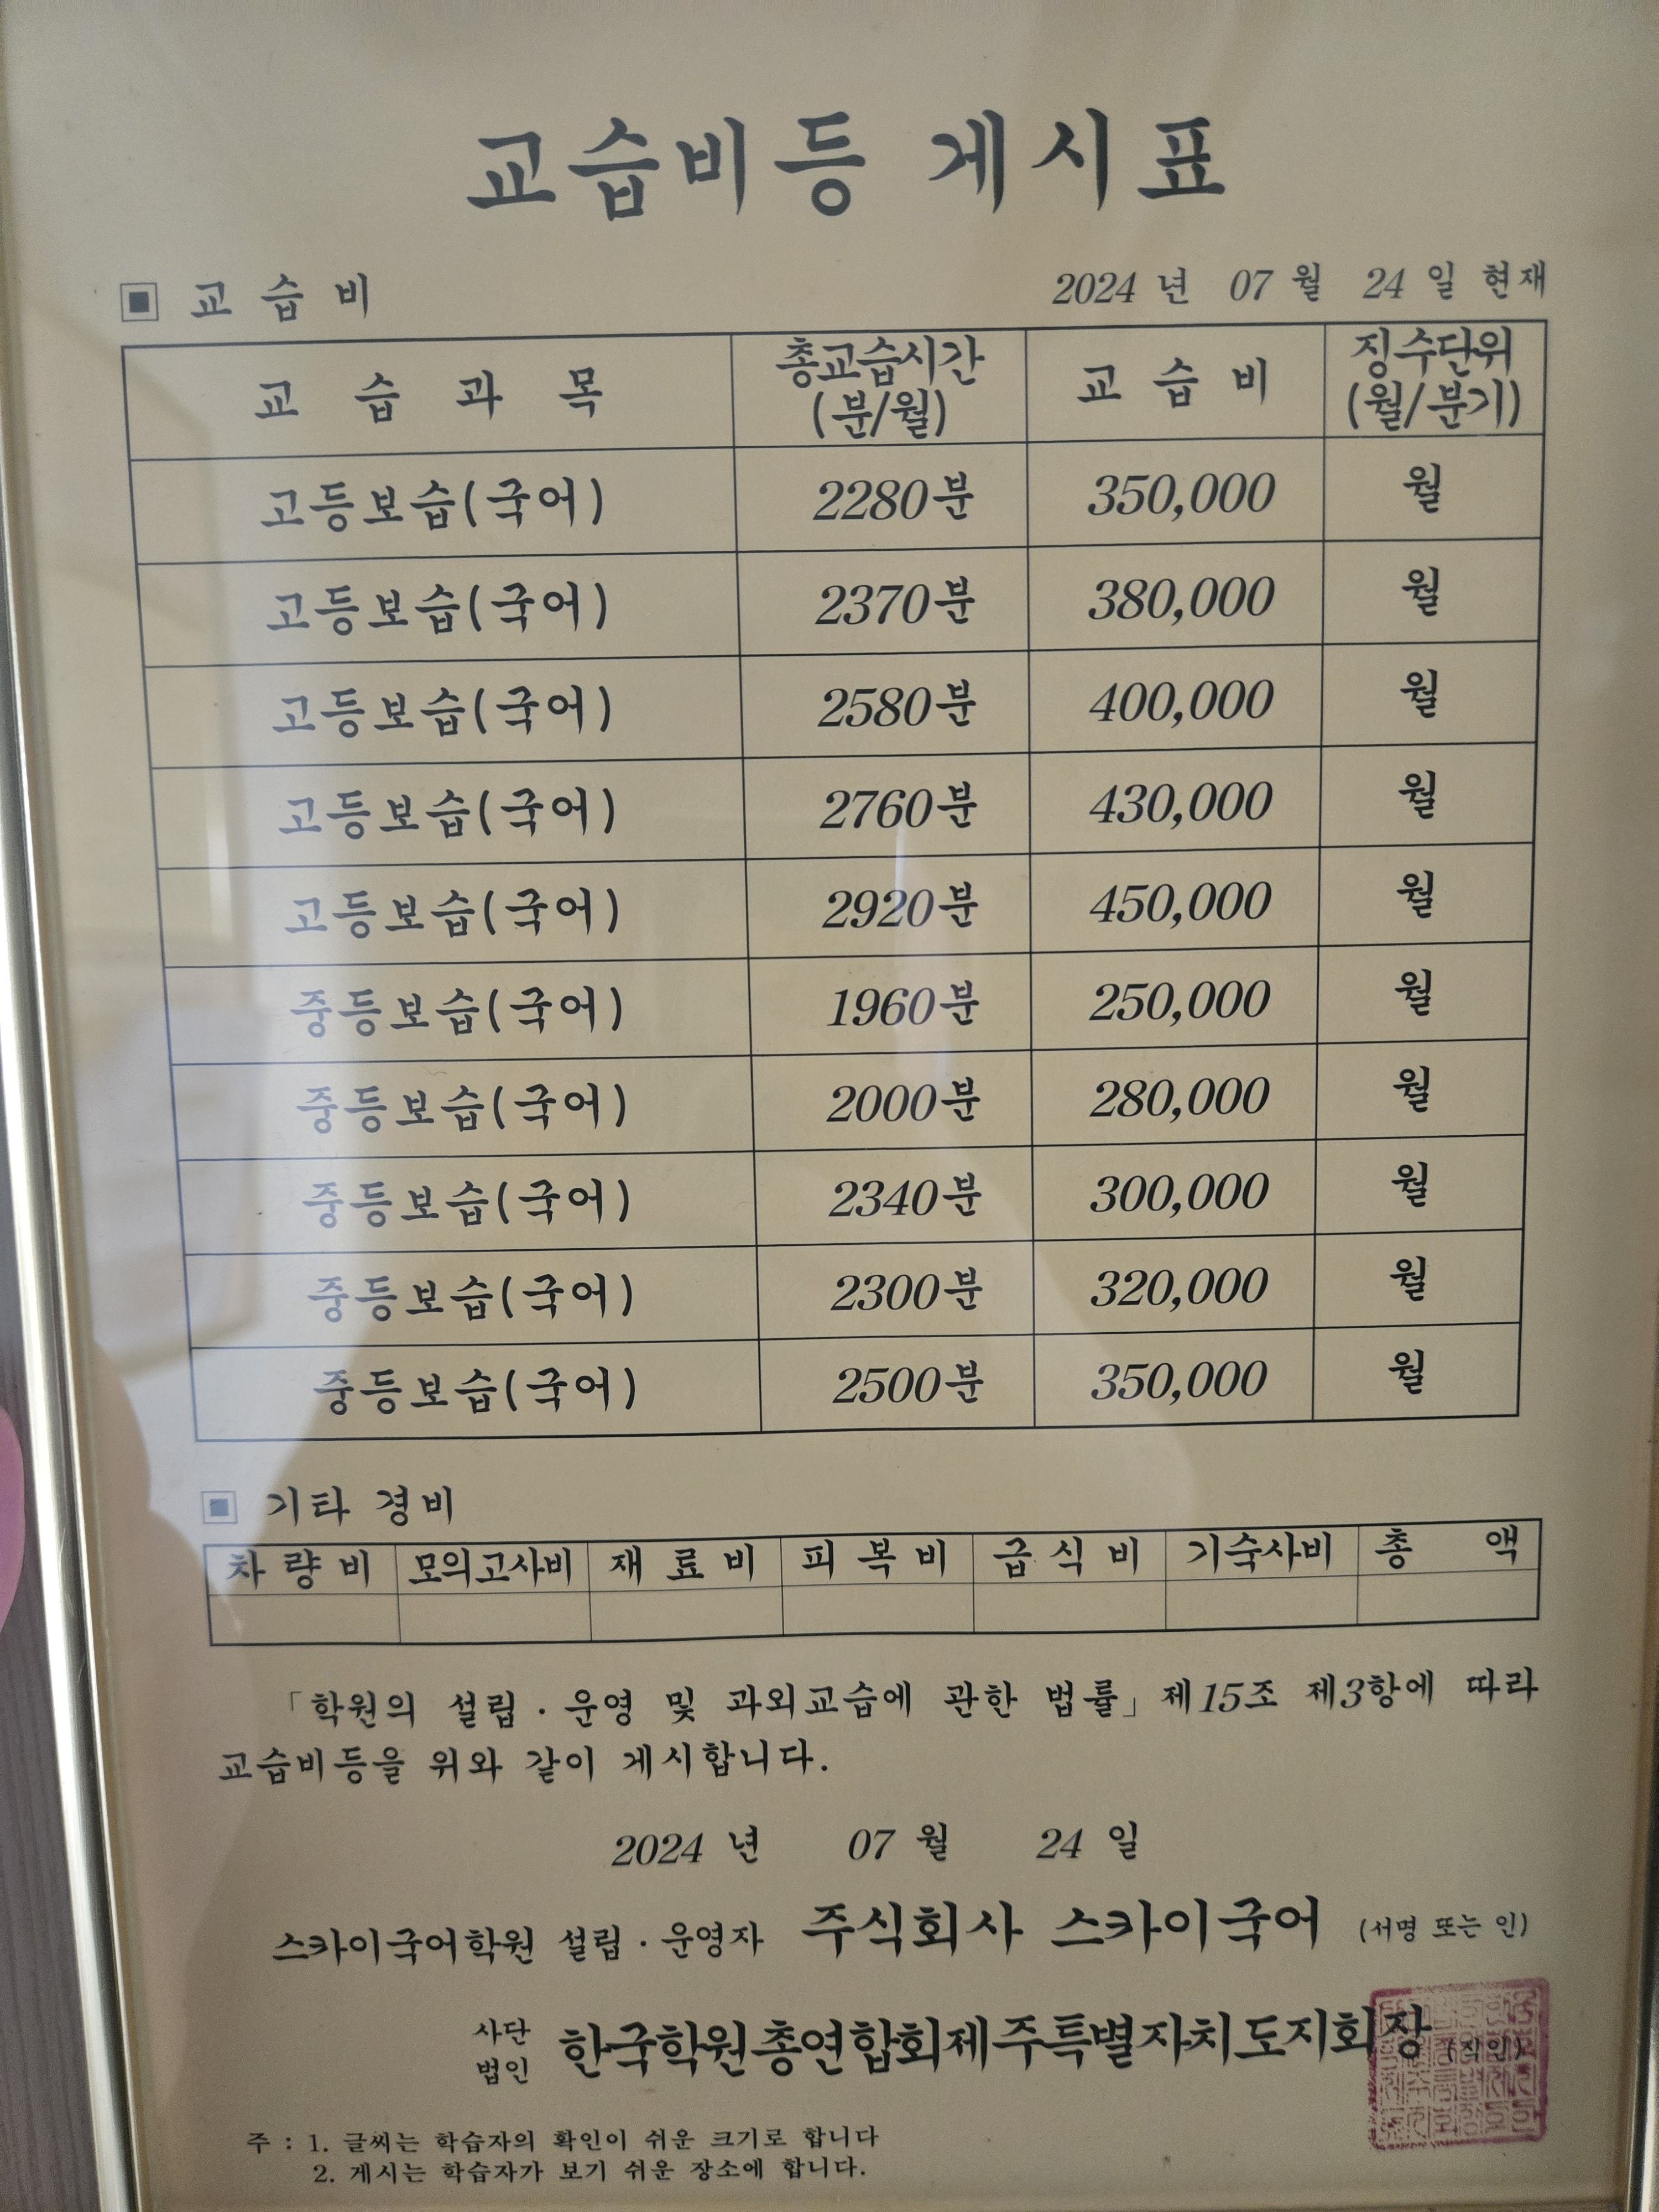 교습비등 게시표
▣ 교 습 비 2024 년 07 월 24 일 현재
교 습 과 목 총교습시간 (분/월) 교 습 비 징수단위 (월/분기)
고등보습(국어) 2280분 350,000 월
고등보습(국어) 2370분 380,000 월
고등보습(국어) 2580분 400,000 월
고등보습(국어) 2760분 430,000 월
고등보습(국어) 2920분 450,000 월
중등보습(국어) 1960분 250,000 월
중등보습(국어) 2000분 280,000 월
중등보습(국어) 2340분 300,000 월
중등보습(국어) 2300분 320,000 월
중등보습(국어) 2500분 350,000 월
▣ 기타 경비
차 량 비 모의고사비 재 료 비 피 복 비 급 식 비 기숙사비 총 액
「학원의 설립 · 운영 및 과외교습에 관한 법률」제15조 제3항에 따라
교습비등을 위와 같이 게시합니다.
2024 년 07 월 24 일
스카이국어학원 설립 · 운영자 주식회사 스카이국어 (서명 또는 인)
사단
법인 한국학원총연합회제주특별자치도지회장 (직인)
주 : 1. 글씨는 학습자의 확인이 쉬운 크기로 합니다
2. 게시는 학습자가 보기 쉬운 장소에 합니다.